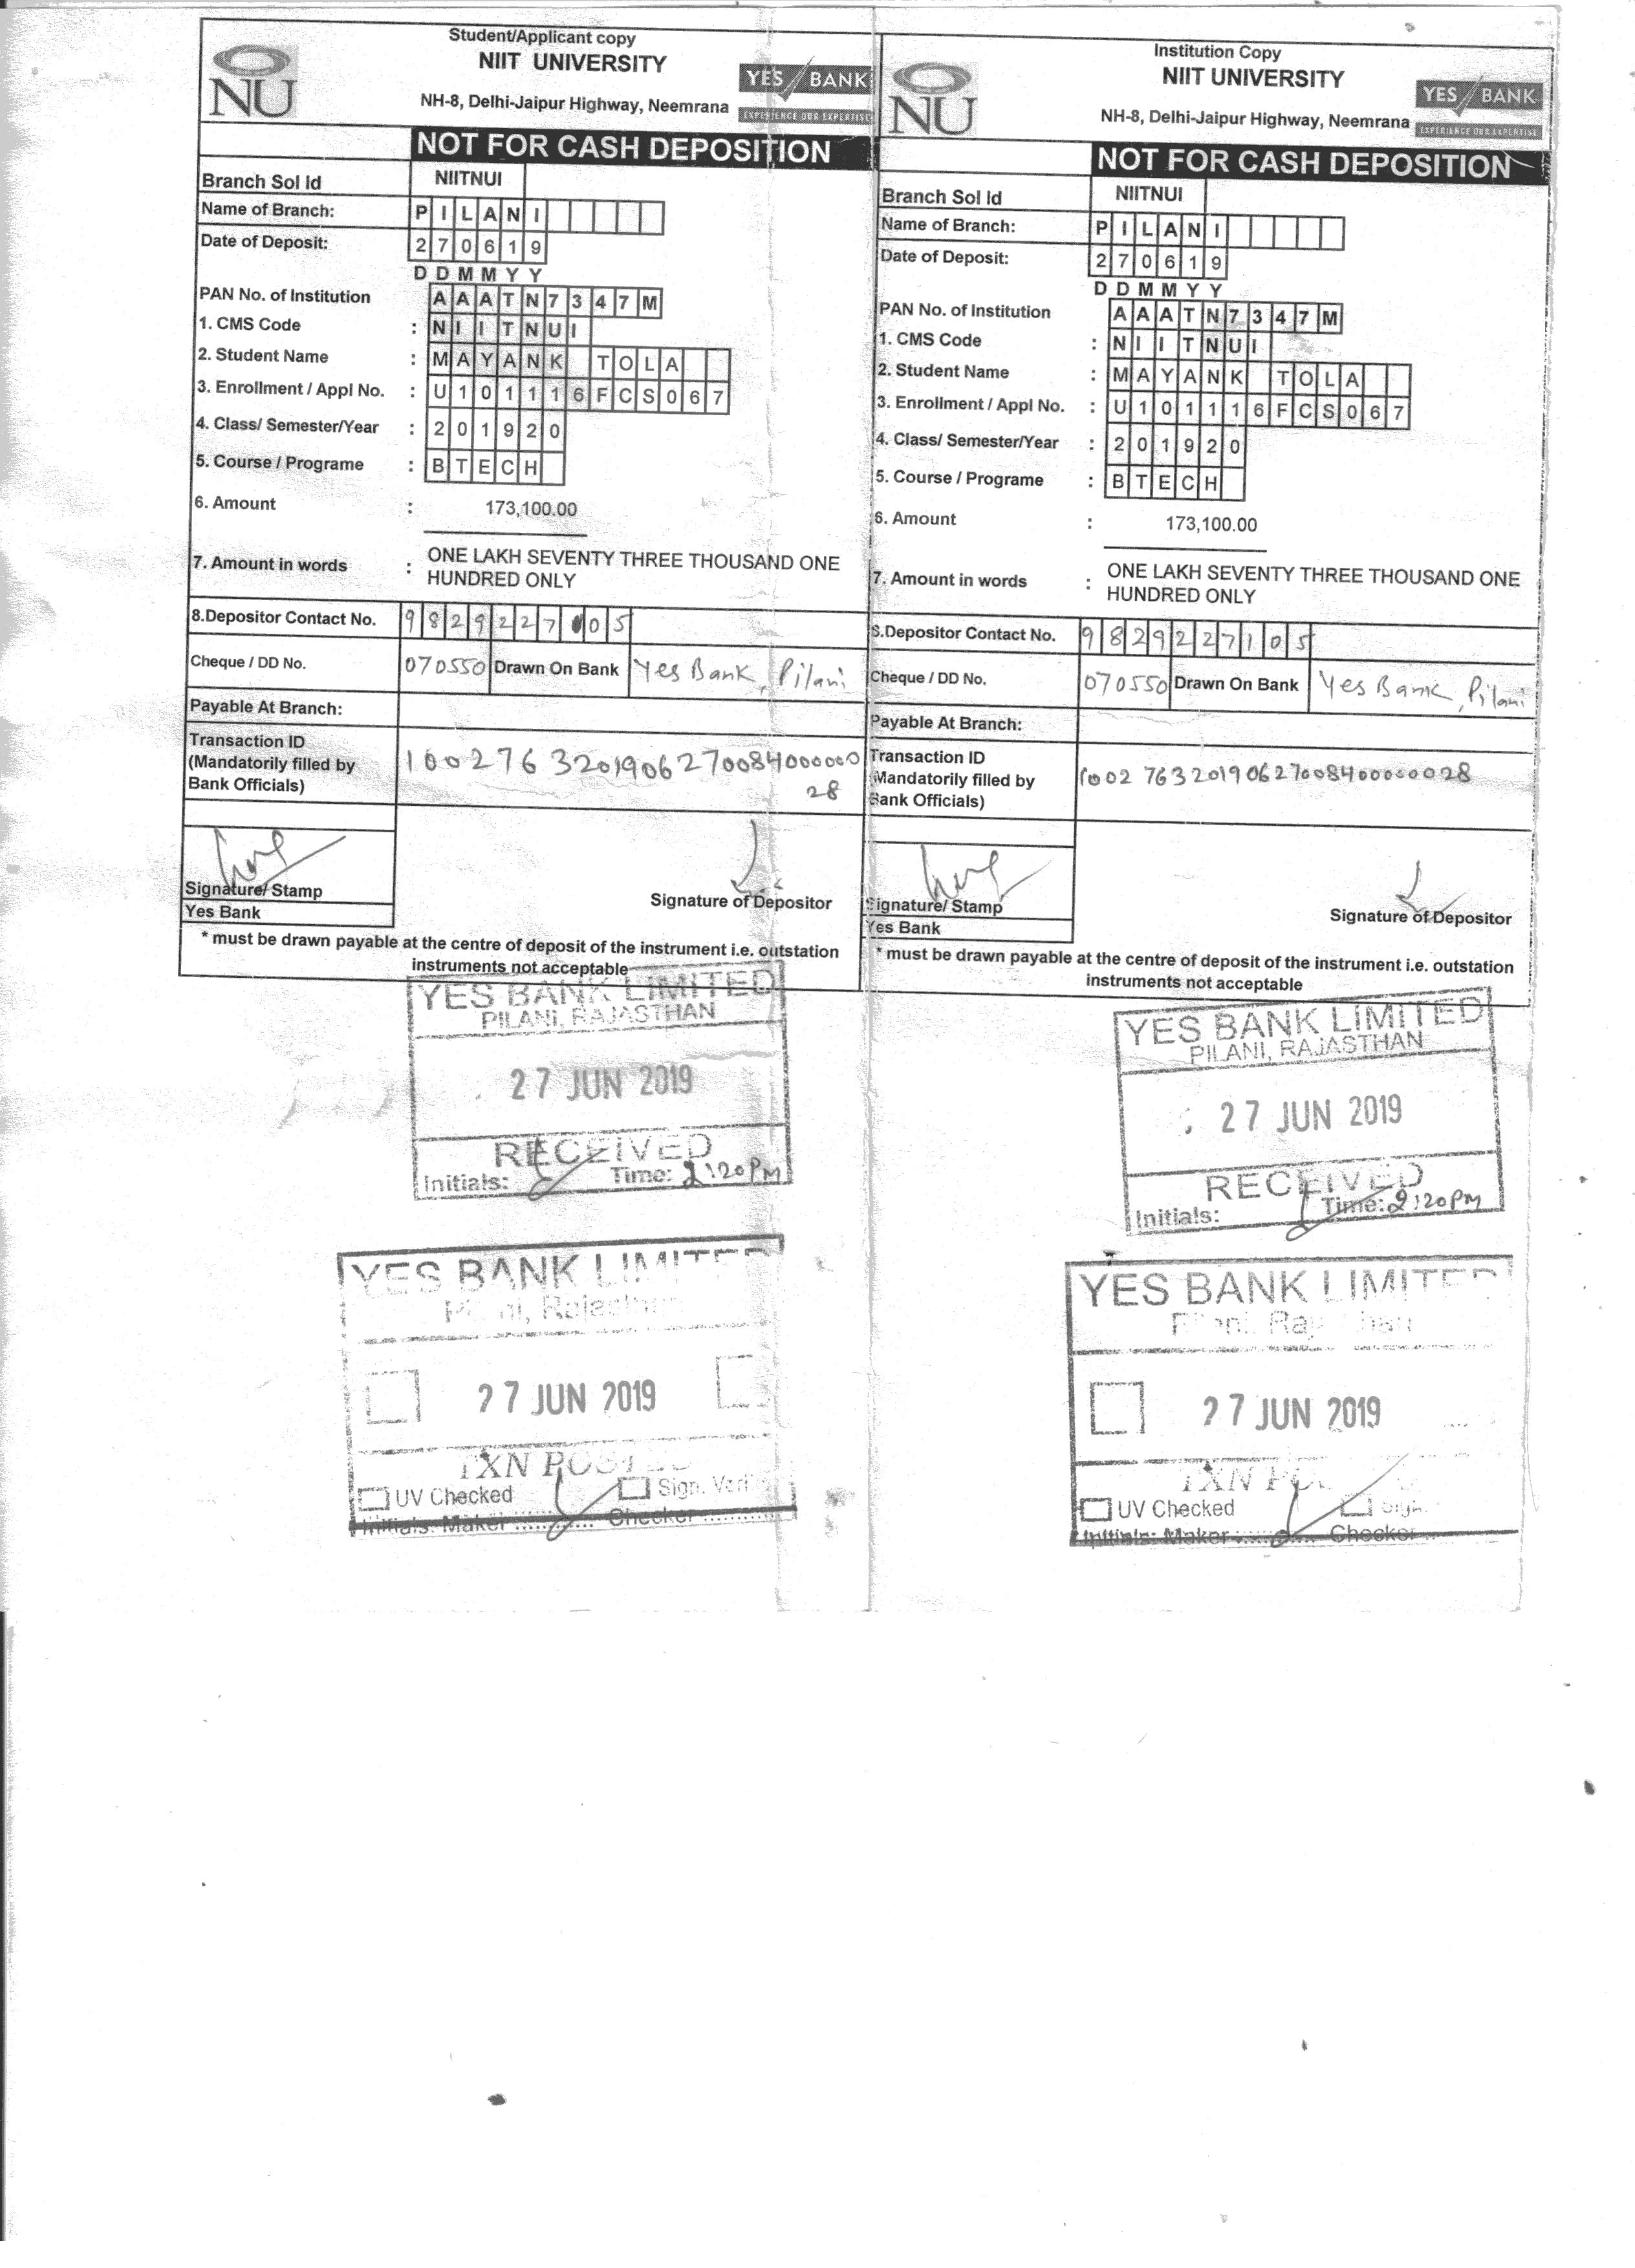 Student/Applicant copy
NIIT UNIVERSITY
NU
YES BANK
EXPERIENCE OUR EXPERTISE
NH-8, Delhi-Jaipur Highway, Neemrana
NOT FOR CASH DEPOSITION
Branch Sol Id NIITNUI
Name of Branch: PILANI
Date of Deposit: 270619
DDMMYY
PAN No. of Institution AAATN7347M
1. CMS Code : NIITNUI
2. Student Name : MAYANK TOLA
3. Enrollment / Appl No. : U101116FCS067
4. Class/ Semester/Year : 201920
5. Course / Programe : BTECH
6. Amount : 173,100.00
7. Amount in words : ONE LAKH SEVENTY THREE THOUSAND ONE
HUNDRED ONLY
8.Depositor Contact No. 9829227105
Cheque / DD No. 070550 Drawn On Bank Yes Bank, Pilani
Payable At Branch:
Transaction ID
(Mandatorily filled by
Bank Officials)
Signature/ Stamp
Yes Bank
Signature of Depositor
* must be drawn payable at the centre of deposit of the instrument i.e. outstation
instruments not acceptable
YES BANK LIMITED
PILANI, RAJASTHAN
27 JUN 2019
RECEIVED
Initials: Time: 2:20PM
YES BANK LIMITED
Pilani, Rajasthan
27 JUN 2019
TXN POSTED
UV Checked Sign. Veri
Initials: Maker Checker
Institution Copy
NIIT UNIVERSITY
NU
YES BANK
EXPERIENCE OUR EXPERTISE
NH-8, Delhi-Jaipur Highway, Neemrana
NOT FOR CASH DEPOSITION
Branch Sol Id NIITNUI
Name of Branch: PILANI
Date of Deposit: 270619
DDMMYY
PAN No. of Institution AAATN7347M
1. CMS Code : NIITNUI
2. Student Name : MAYANK TOLA
3. Enrollment / Appl No. : U101116FCS067
4. Class/ Semester/Year : 201920
5. Course / Programe : BTECH
6. Amount : 173,100.00
7. Amount in words : ONE LAKH SEVENTY THREE THOUSAND ONE
HUNDRED ONLY
8.Depositor Contact No. 9829227105
Cheque / DD No. 070550 Drawn On Bank Yes Bank, Pilani
Payable At Branch:
Transaction ID
Mandatorily filled by
Bank Officials)
Signature/ Stamp
Yes Bank
Signature of Depositor
* must be drawn payable at the centre of deposit of the instrument i.e. outstation
instruments not acceptable
YES BANK LIMITED
PILANI, RAJASTHAN
27 JUN 2019
RECEIVED
Initials: Time: 2:20PM
YES BANK LIMITED
27 JUN 2019
TXN
UV Checked
Initials: Maker Checker